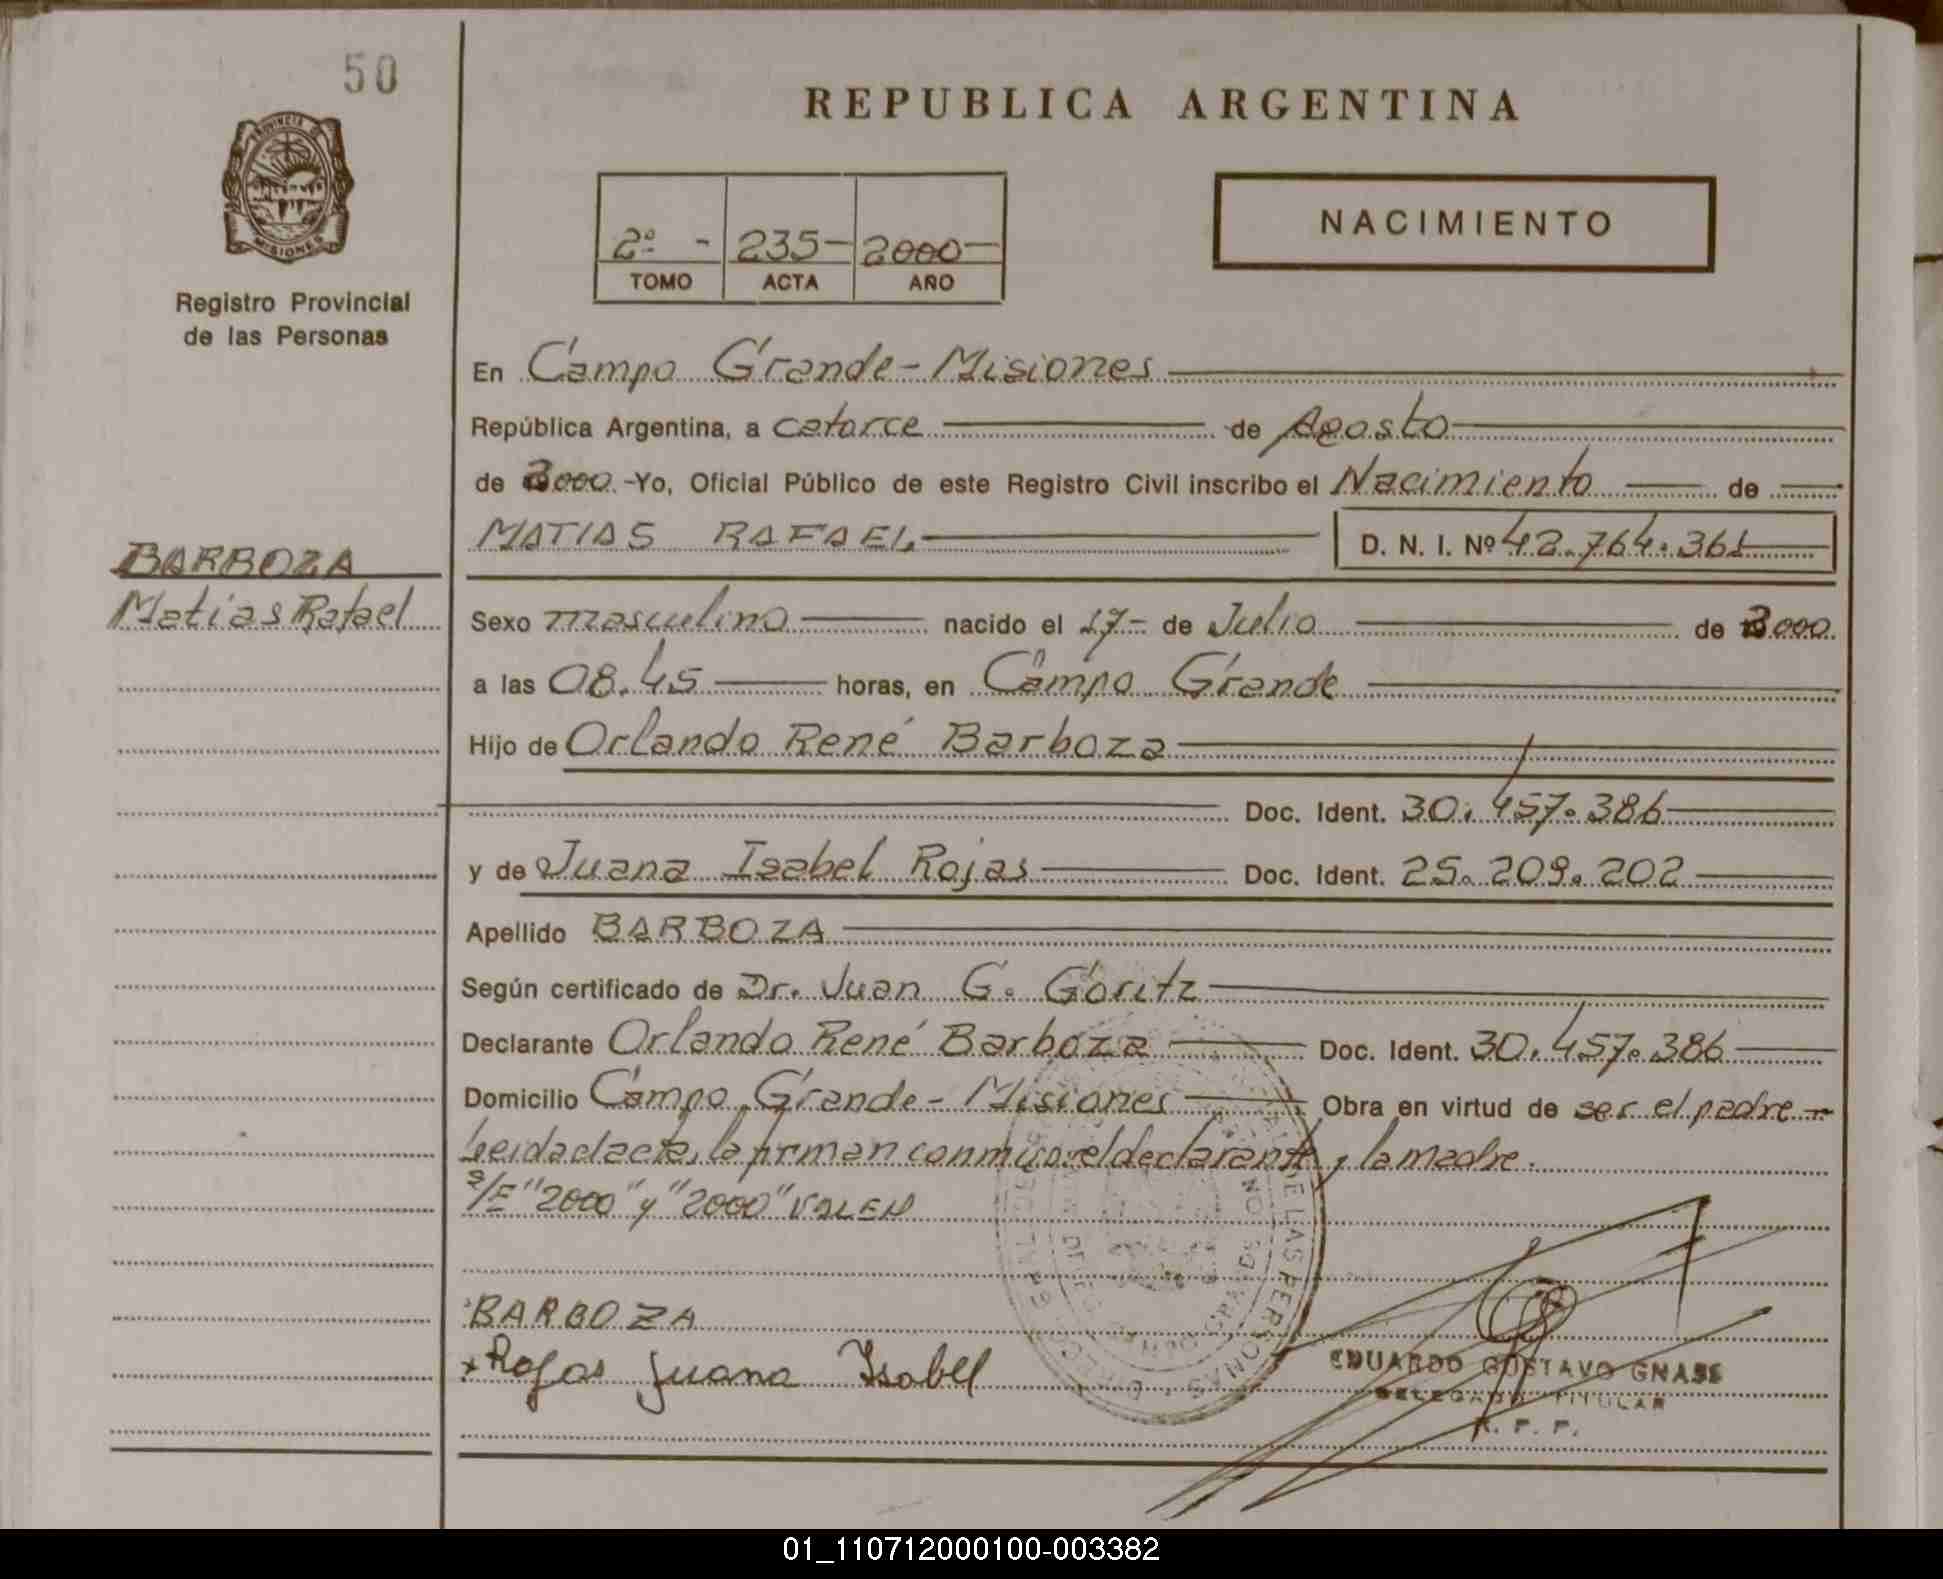 50
REPUBLICA ARGENTINA
PROVINCIA DE
MISIONES
Registro Provincial
de las Personas
2º - 235- 2000-
TOMO ACTA AÑO
NACIMIENTO
En Campo Grande - Misiones
República Argentina, a catorce de Agosto
de 2000 - Yo, Oficial Público de este Registro Civil inscribo el Nacimiento de
MATIAS RAFAEL D. N. I. Nº 42.764.361
BARBOZA
Matias Rafael
Sexo masculino nacido el 17- de Julio de 2000
a las 08.45 horas, en Campo Grande
Hijo de Orlando René Barboza
Doc. Ident. 30.457.386
y de Juana Isabel Rojas Doc. Ident. 25.209.202
Apellido BARBOZA
Según certificado de Dr. Juan G. Góritz
Declarante Orlando René Barboza Doc. Ident. 30.457.386
Domicilio Campo Grande - Misiones Obra en virtud de ser el padre -
Leida el acta, la firman conmigo el declarante y la madre.
s/E "2000" y "2000" VALEN
DE LAS PERSONAS
CAMPO GRANDE
BARBOZA
x Rojas Juana Isabel
EDUARDO GUSTAVO GNASS
DELEGADO TITULAR
R. P. P.
01_110712000100-003382